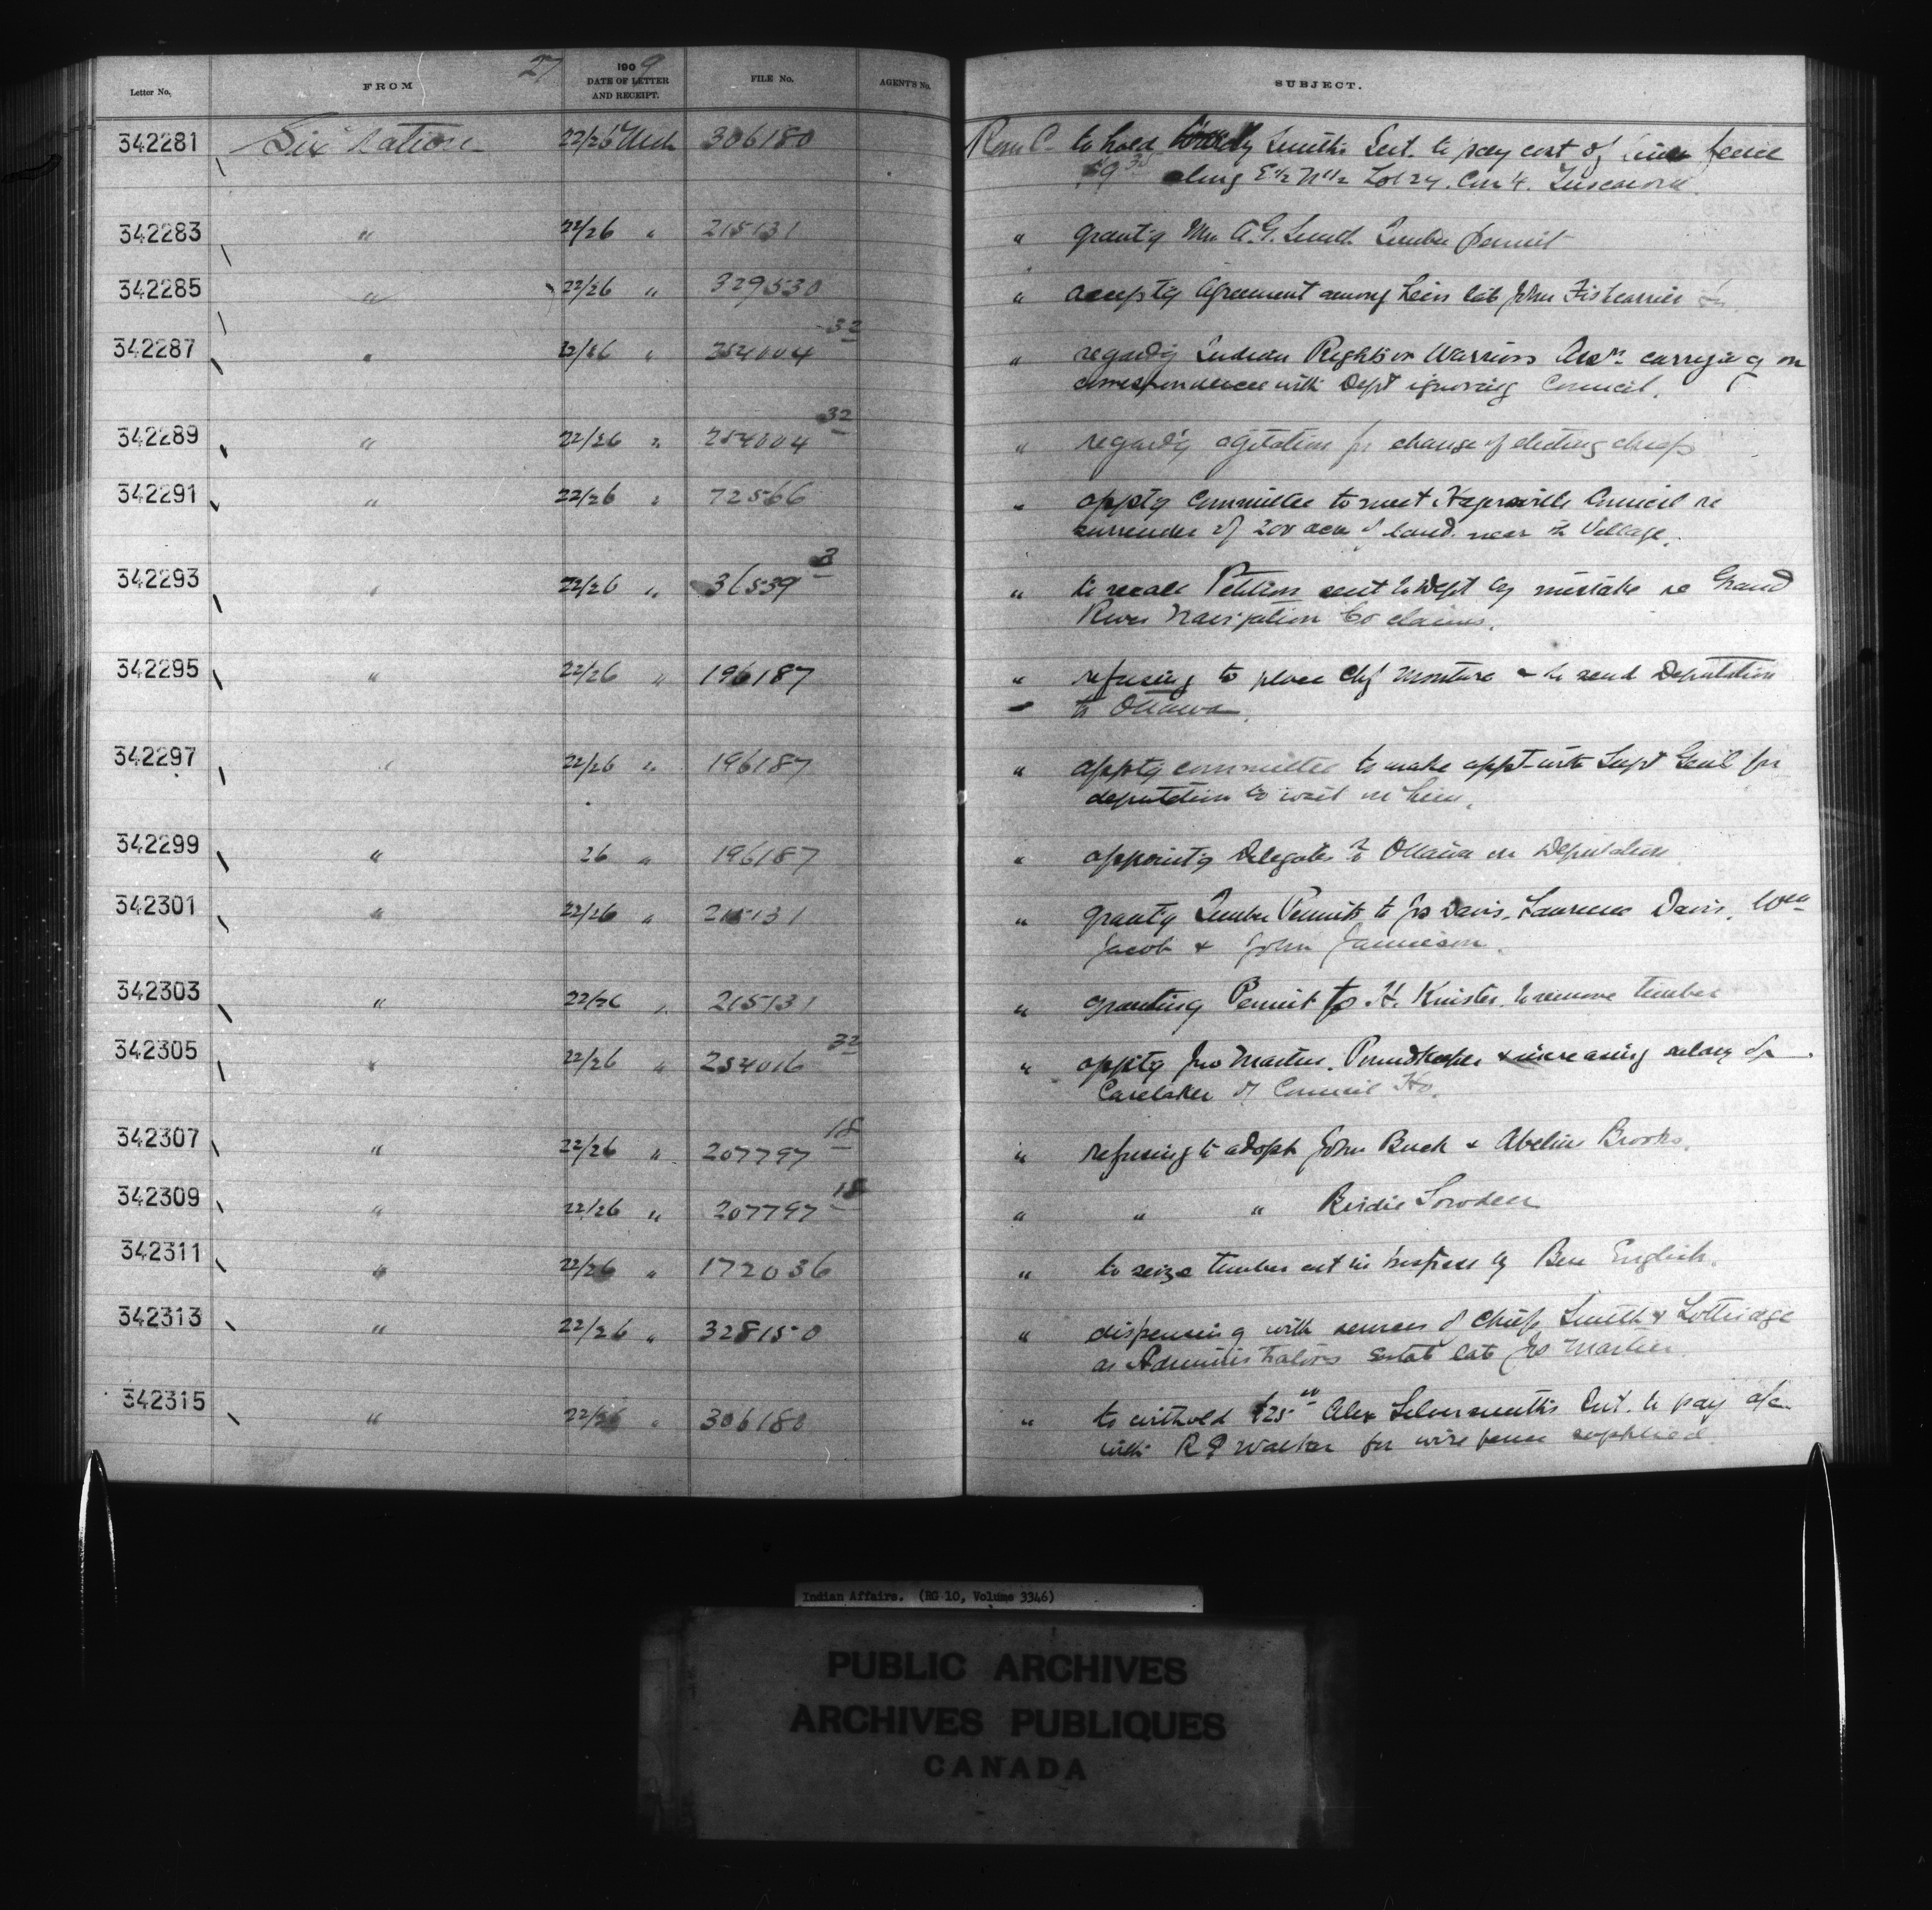 27
Letter No. FROM 1909 DATE OF LETTER AND RECEIPT. FILE No. AGENT'S No. SUBJECT.
342281 Six Nation 22/26 Mch 306180 Resn C. to hold Smith's Int. to pay cost of fence
$9 along E½ N½ Lot 24. Con 4. Tuscarora
342283 " 22/26 " 215131 " grant'g Mr A.G. Smith Timber permit
342285 " 22/26 " 329530 " accept'g Agreement among heirs late John Fishcarrier
342287 " 22/26 " 254004 32 " regard'g Indian Rights or Warriors Assn. carrying on
correspondence with Dept ignoring Council.
342289 " 22/26 " 254004 32 " regard'g agitation for change of electing chiefs
342291 " 22/26 " 72566 " appt'g Committee to meet Hagersville Council re
surrender of 200 acres of land near the Village.
342293 " 22/26 " 36539 3 " to recall Petition sent to Dept by mistake re Grand
River Navigation Co claims.
342295 " 22/26 " 196187 " refusing to place Chf Monture & to send Deputation
to Ottawa.
342297 " 22/26 " 196187 " appt'g committee to make appt with Supt Genl for
deputation to wait on him.
342299 " 26 " 196187 " appoint'g Delegates to Ottawa on Deputation
342301 " 22/26 " 215131 " grant'g Timber Permits to Jos Davis, Lawrence Davis, Wm
Jacob & John Jamieson.
342303 " 22/26 " 215131 " granting Permit to H. Knister to remove timber
342305 " 22/26 " 254016 32 " appt'g Jno Martin, Poundkeeper & increasing salary of
Caretaker of Council Ho.
342307 " 22/26 " 207797 18 " refusing to adopt John Buck & Abelin Brooks.
342309 " 22/26 " 207797 18 " " " Birdie Lowden
342311 " 22/26 " 172036 " to seize timber cut in trespass by Ben English.
342313 " 22/26 " 328150 " dispensing with services of Chiefs Smith & Lottridge
as Administrators Estate late Jno Martin.
342315 " 22/26 " 306180 " to withold $25 00 Alex Silversmith's Int. to pay a/c
with R J Walker for wire fence supplied.
Indian Affairs. (RG 10, Volume 3346)
PUBLIC ARCHIVES
ARCHIVES PUBLIQUES
CANADA